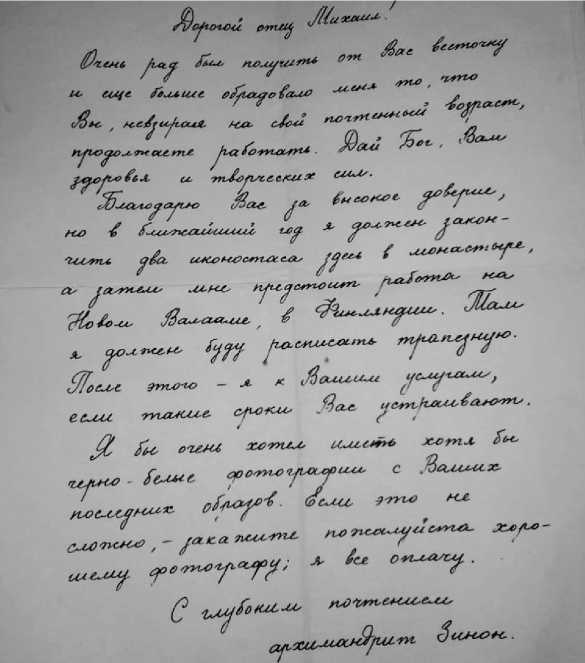 Дорогой отец Михаил!
Очень рад был получить от Вас весточку
и еще больше обрадовало меня то, что
Вы, невзирая на свой почтенный возраст,
продолжаете работать. Дай Бог, Вам
здоровья и творческих сил.
Благодарю Вас за высокое доверие,
но в ближайший год я должен закон-
чить два иконостаса здесь в монастыре,
а затем мне предстоит работа на
Новом Валааме, в Финляндии. Там
я должен буду расписать трапезную.
После этого – я к Вашим услугам,
если такие сроки Вас устраивают.
Я бы очень хотел иметь хотя бы
черно-белые фотографии с Ваших
последних образов. Если это не
сложно, – закажите пожалуйста хоро-
шему фотографу; я все оплачу.
С глубоким почтением
архимандрит Зинон.